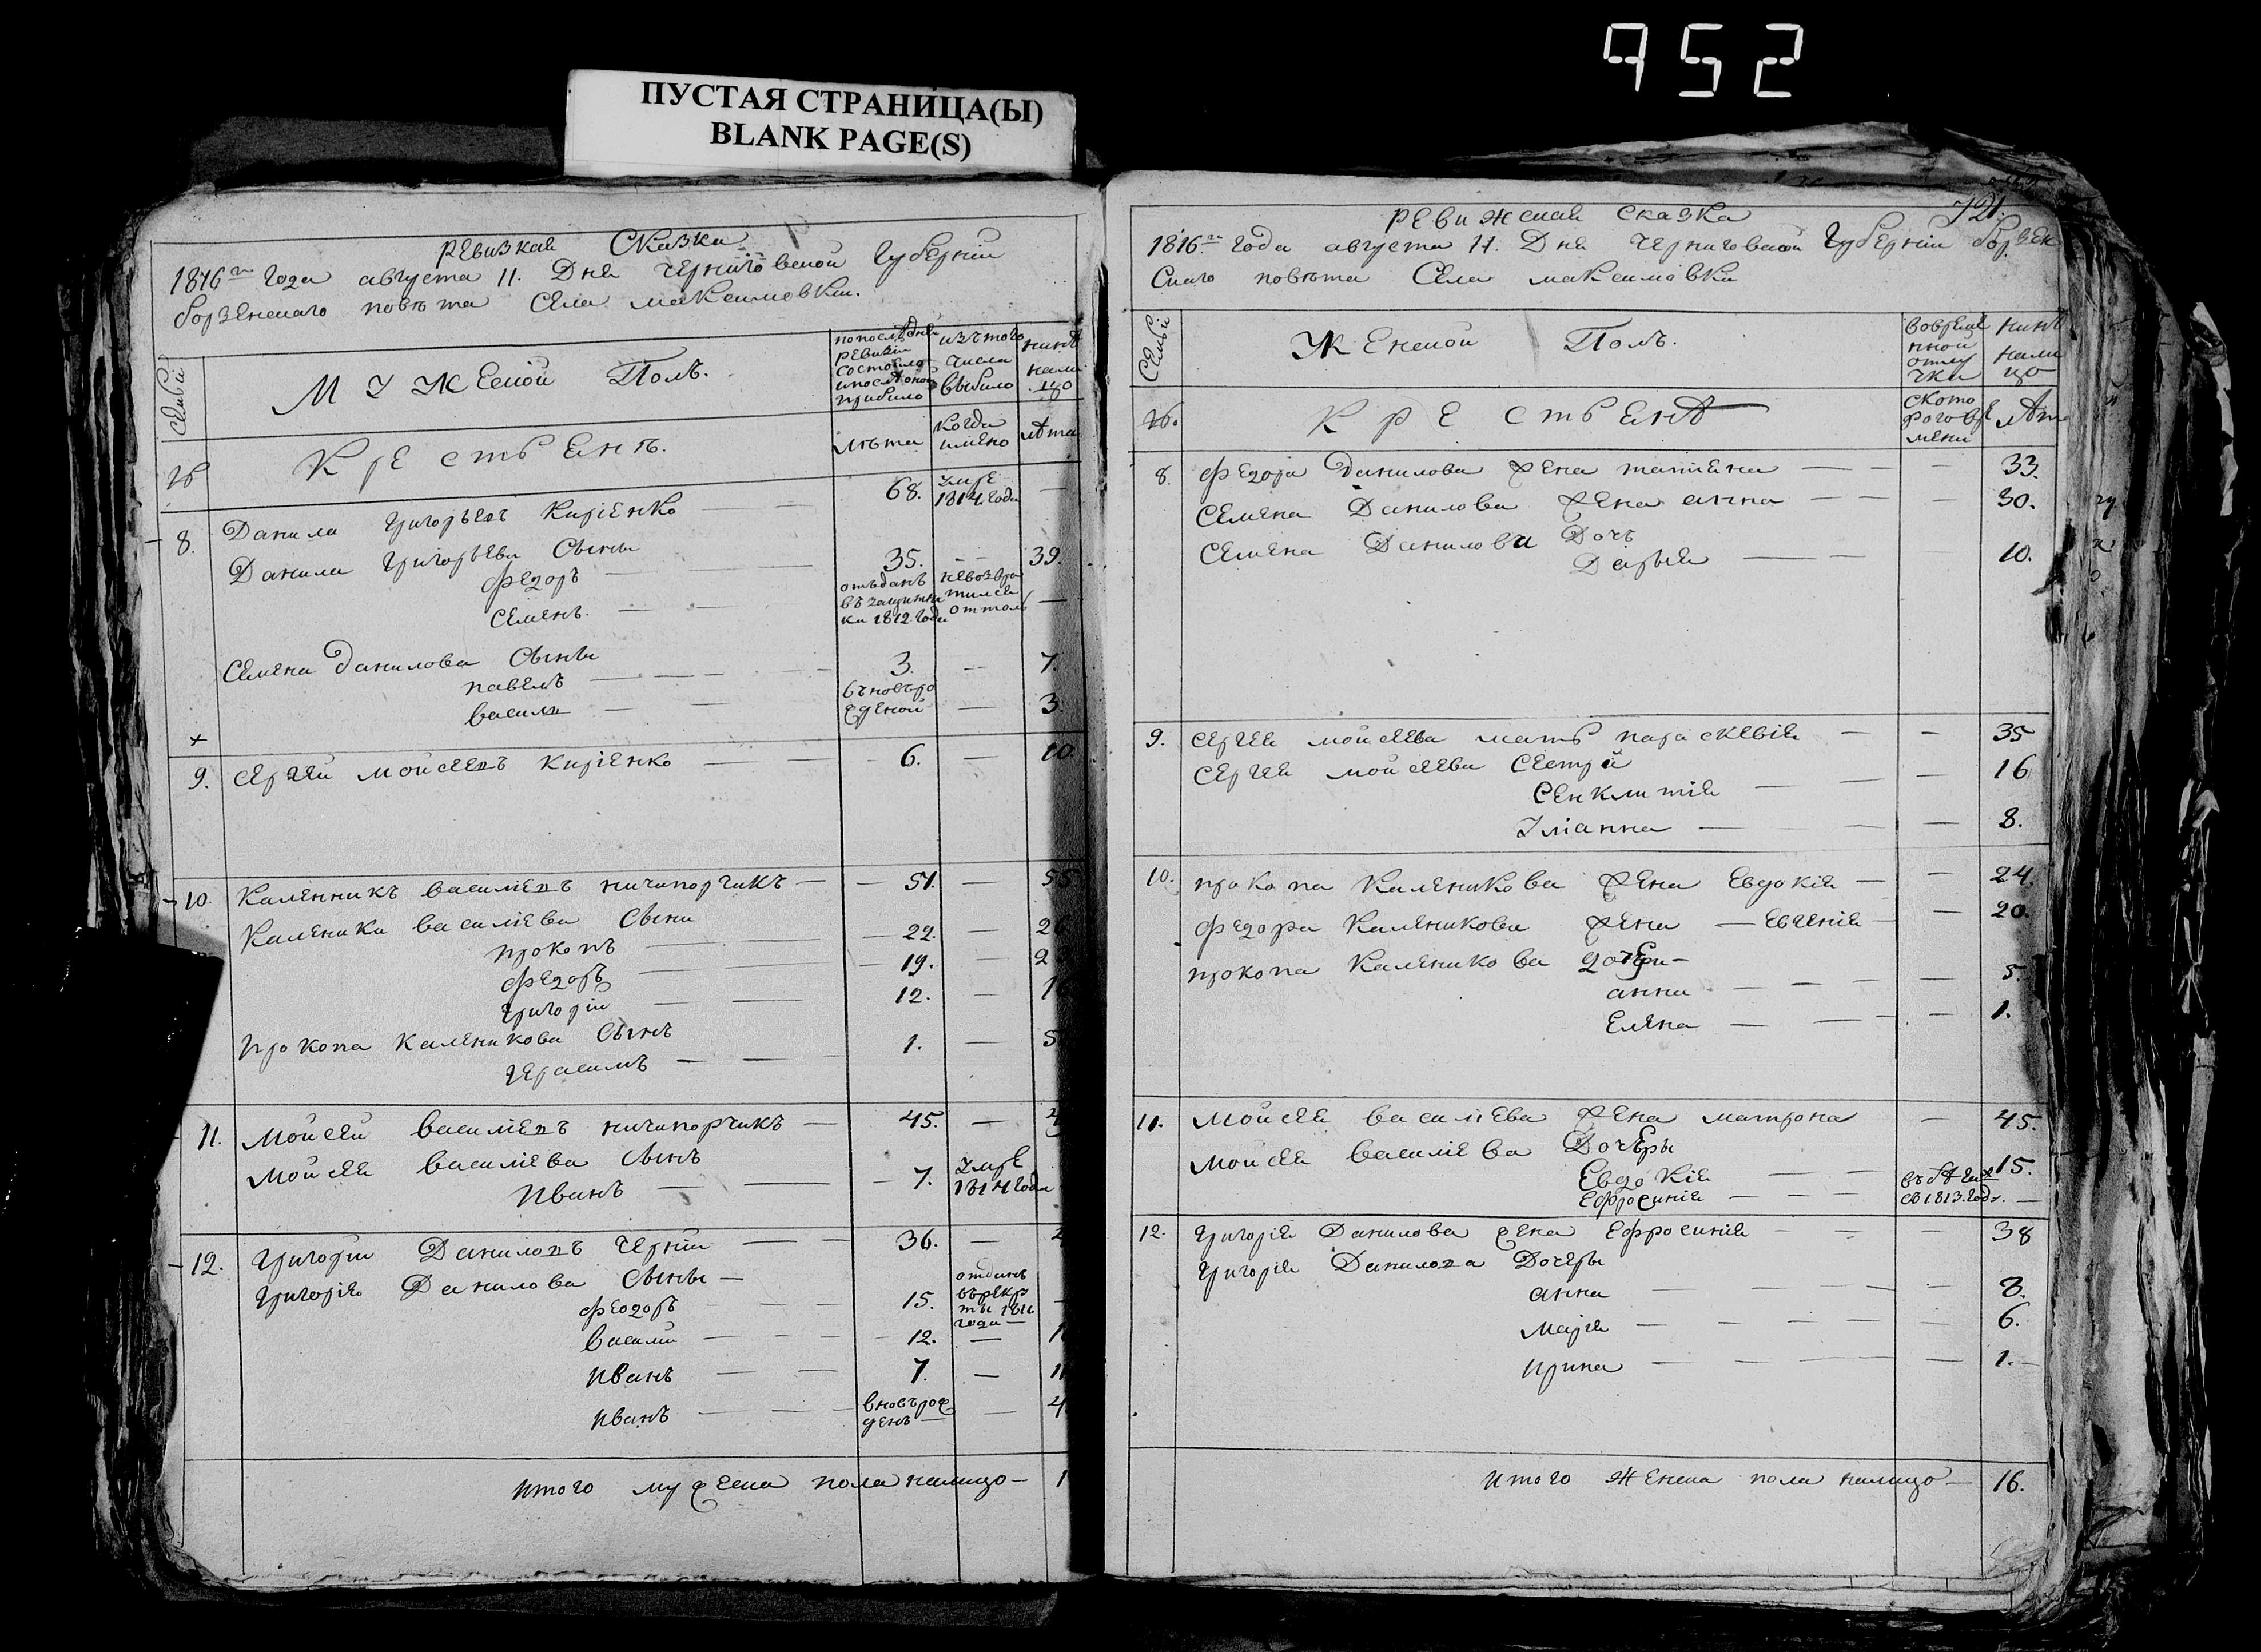 952
ПУСТАЯ СТРАНИЦА(Ы)
BLANK PAGE(S)
ревизкая Сказка
1816го года августа 11. Дня черниговской Губернии
борзенскаго повѣта Села максимовки.
Семьи
Мужеской Полъ.
попослѣдней ревизии состояло ипослѣ оной прибыло
изътого числа выбыло
нинѣ налицо
№
Крестьянъ.
лѣта
когда имено
лѣта
8. Данила Григорьевъ Кириенко — — 68. умре 1814. года —
Данила Григорьева Сыны
федоръ — — 35. — — 39.
Семенъ. — — отъданъ въ защитники 1812. года невозвратился оттоль —
Семена Данилова Сыны
павелъ — — — 3. — 7.
василь — — въновърожденой — 3.
9. Сергей мойсеевъ кириенко — — 6. — 10.
10. Каленникъ василиевъ ничипорчикъ — 51. — 55
Каленика василиева Сыны
прокопъ — — 22. — 26
федоръ — — 19. — 2
григорий — — 12. — 1
прокопа Каленикова Сынъ
герасимъ — — — 1. — 5
11. Мойсей василиевъ ничипорчикъ — 45. — 4
Мойсея василиева Сынъ
Иванъ — — 7. умре 1814 года
12. Григорий Даниловъ Черний — — 36. —
Григорія Данилова Сыны —
федоръ — — — 15. отданъ върекруты 1811 года —
василий — — — 12. — 1
Иванъ — — 7. — 11
Иванъ — — — вновърожденъ — — 4
Итого мужеска пола налицо — 1
721.
ревижская Сказка
1816го года августа 11. Дня Черниговской Губернии борзен
Скаго повѣта Села максимовки
Семьи
Женской Полъ.
вовременной отлучки
нинѣ налицо
№.
Крестьянѣ
скоторого времени
лѣта
8. федора Данилова жена татияна — — — 33.
Семена Данилова жена анна — — — 30.
Семена Данилова Дочь
Дарья — — 10.
9. Сергея мойсеева мать параскевия — — 35
Сергея мойсеева Сестры
Сенклития — — — 16
Улианна — — — — 8.
10. прокопа Каленикова жена Евдокия — — 24.
федора Каленикова жена — Евгения — — 20.
прокопа Каленикова дочери —
анна — — — — — 5.
Елена — — — — 1.
11. Мойсея василиева жена матрона — 45.
Мойсея василиева Дочеры
Евдокия — — 15.
Ефросиния — — — въ бѣгахъ съ 1813. году. —
12. Григория Данилова жена Ефросиния — — — 38
Григория Данилова Дочеры
анна — — — — 8.
Мария — — — — — 6.
Ирина — — — — — 1. —
Итого Женска пола налицо — 16.